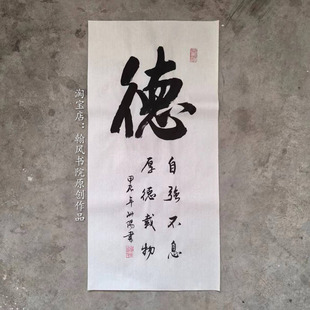 德
自强不息
厚德载物
甲辰年
书
淘宝店：翰风书院原创作品